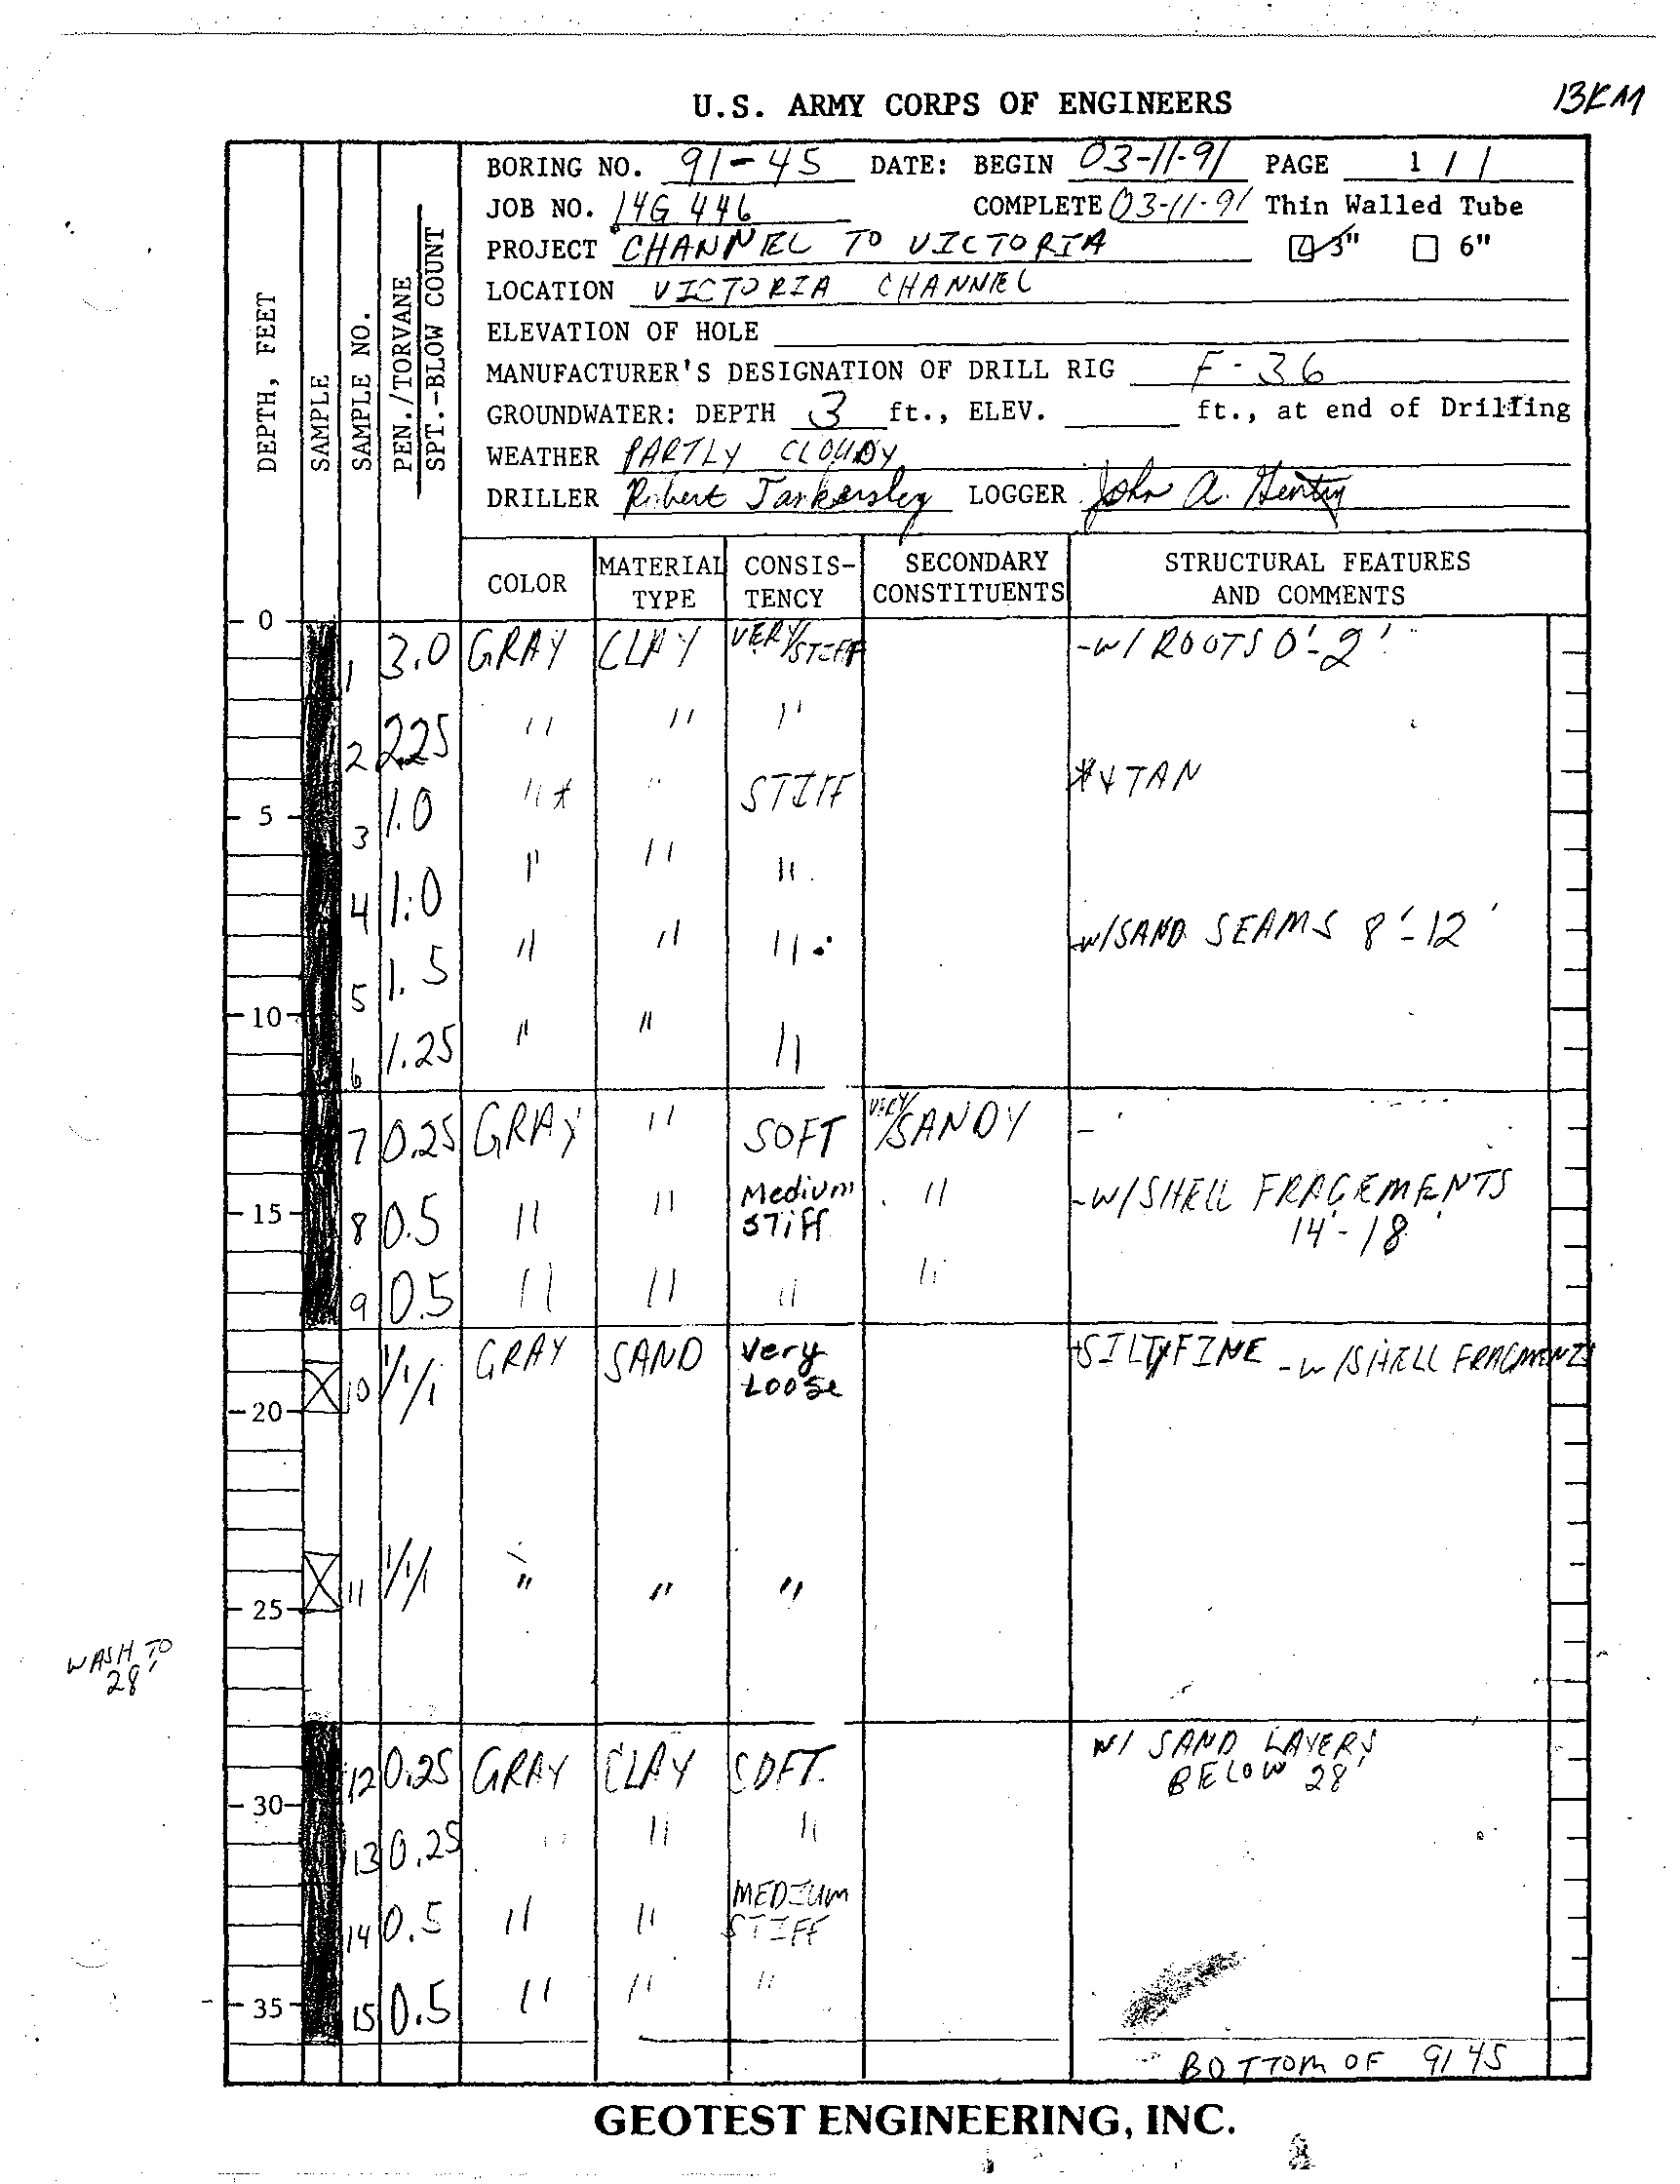 U.S. ARMY CORPS OF ENGINEERS
13KM
BORING NO. 91-45 DATE: BEGIN 03-11-91 PAGE 1 / 1
JOB NO. 14G 446 COMPLETE 03-11-91 Thin Walled Tube
PROJECT CHANNEL TO VICTORIA 3" 6"
LOCATION VICTORIA CHANNEL
ELEVATION OF HOLE
MANUFACTURER'S DESIGNATION OF DRILL RIG F-36
GROUNDWATER: DEPTH 3 ft., ELEV. ft., at end of Drilling
WEATHER PARTLY CLOUDY
DRILLER Robert Tankersley LOGGER John A. Hentry
DEPTH, FEET
SAMPLE
SAMPLE NO.
PEN./TORVANE
SPT.-BLOW COUNT
COLOR
MATERIAL TYPE
CONSIS-TENCY
SECONDARY CONSTITUENTS
STRUCTURAL FEATURES AND COMMENTS
0
1 3.0 GRAY CLAY VERY/STIFF -W/ ROOTS 0'-2'
2 2.25 " " "
3 1.0 "* " STIFF *& TAN
5
4 1.0 " " "
5 1.5 " " " -W/SAND SEAMS 8'-12'
10
6 1.25 " " "
7 0.25 GRAY " SOFT VERY/SANDY -
8 0.5 " " Medium STIFF " -W/SHELL FRAGEMENTS
14'-18'
15
9 0.5 " " " "
10 1/1/1 GRAY SAND Very Loose +SILTY FINE -W/SHELL FRAGMENTS
20
11 1/1/1 " " "
25
WASH TO
28'
12 0.25 GRAY CLAY SOFT. W/ SAND LAYERS
BELOW 28'
30
13 0.25 " " "
14 0.5 " " MEDIUM STIFF
15 0.5 " " "
35
BOTTOM OF 91 45
GEOTEST ENGINEERING, INC.